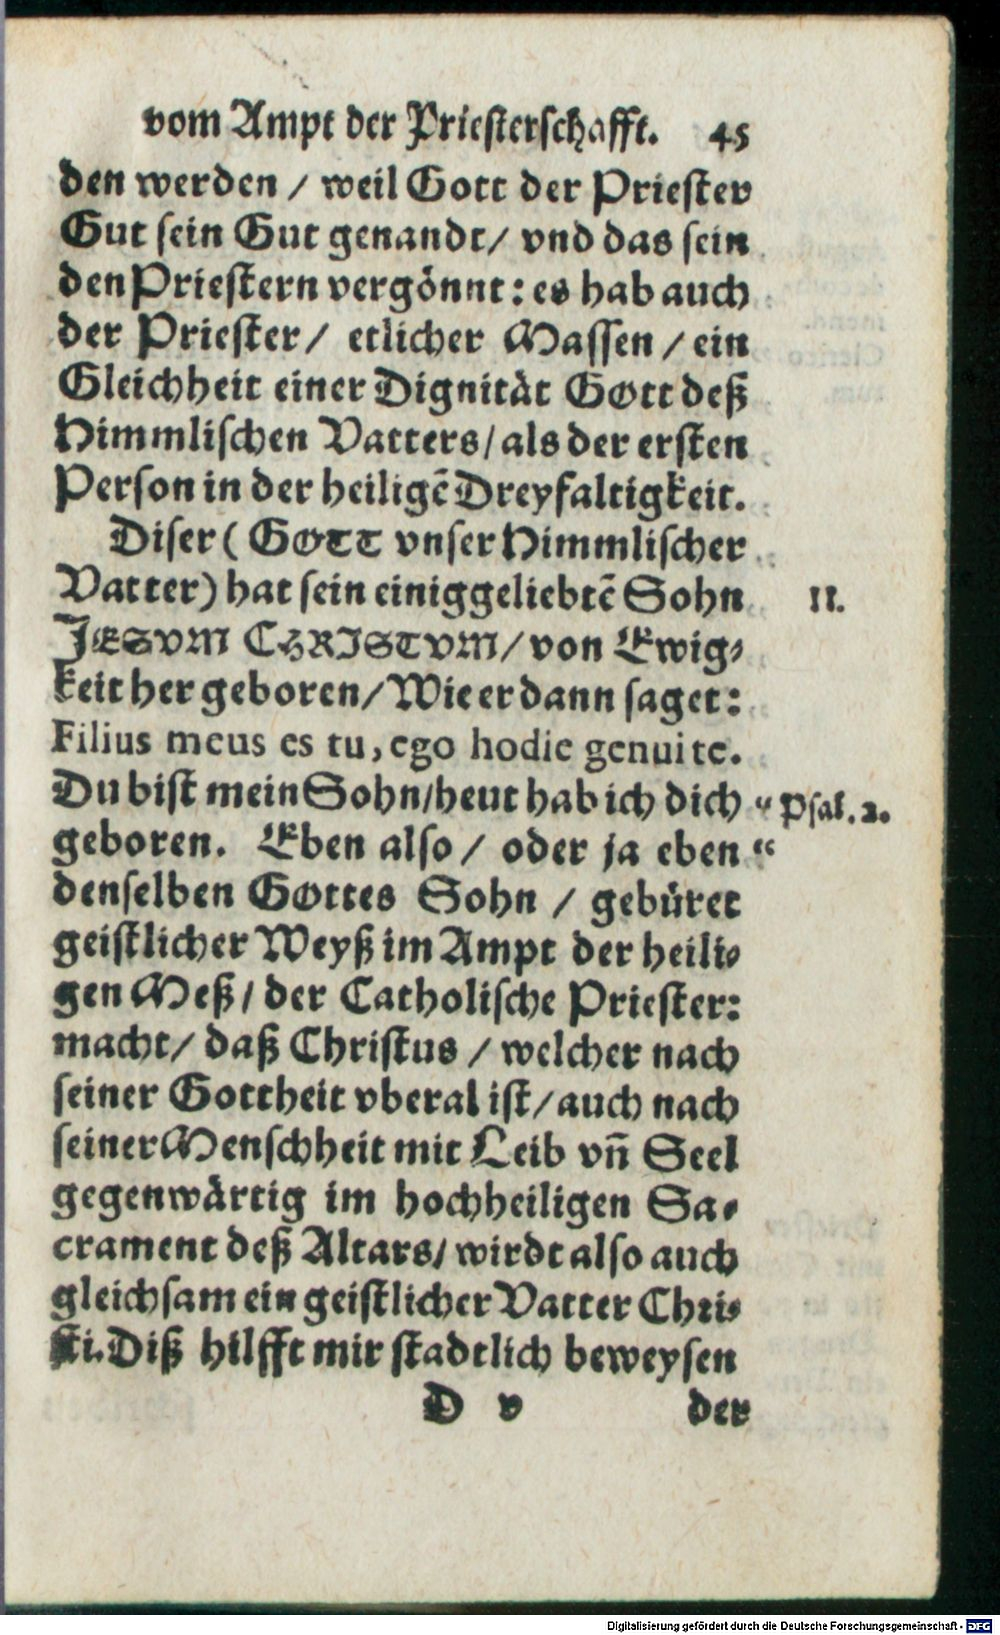 vom Ampt der Priesterschafft. 45
den werden / weil Gott der Priester
Gut sein Gut genandt / vnd das sein
den Priestern vergönnt: es hab auch
der Priester / etlicher Massen / ein
Gleichheit einer Dignität GOtt deß
Himmlischen Vatters / als der ersten
Person in der heiligẽ Dreyfaltigkeit.
Diser ( GOTT vnser Himmlischer
Vatter) hat sein einiggeliebtẽ Sohn II.
JESVM CHRISTVM / von Ewig-
keit her geboren / Wie er dann saget:
Filius meus es tu, ego hodie genui te.
Du bist mein Sohn / heut hab ich dich “ Psal. 2.
geboren. Eben also / oder ja eben “
denselben GOttes Sohn / gebüret
geistlicher Weyß im Ampt der heili-
gen Meß / der Catholische Priester:
macht / daß Christus / welcher nach
seiner Gottheit vberal ist / auch nach
seiner Menschheit mit Leib vñ Seel
gegenwärtig im hochheiligen Sa-
crament deß Altars / wirdt also auch
gleichsam ein geistlicher Vatter Chri-
sti. Diß hilfft mir stadtlich beweysen
D v der
Digitalisierung gefördert durch die Deutsche Forschungsgemeinschaft - DFG